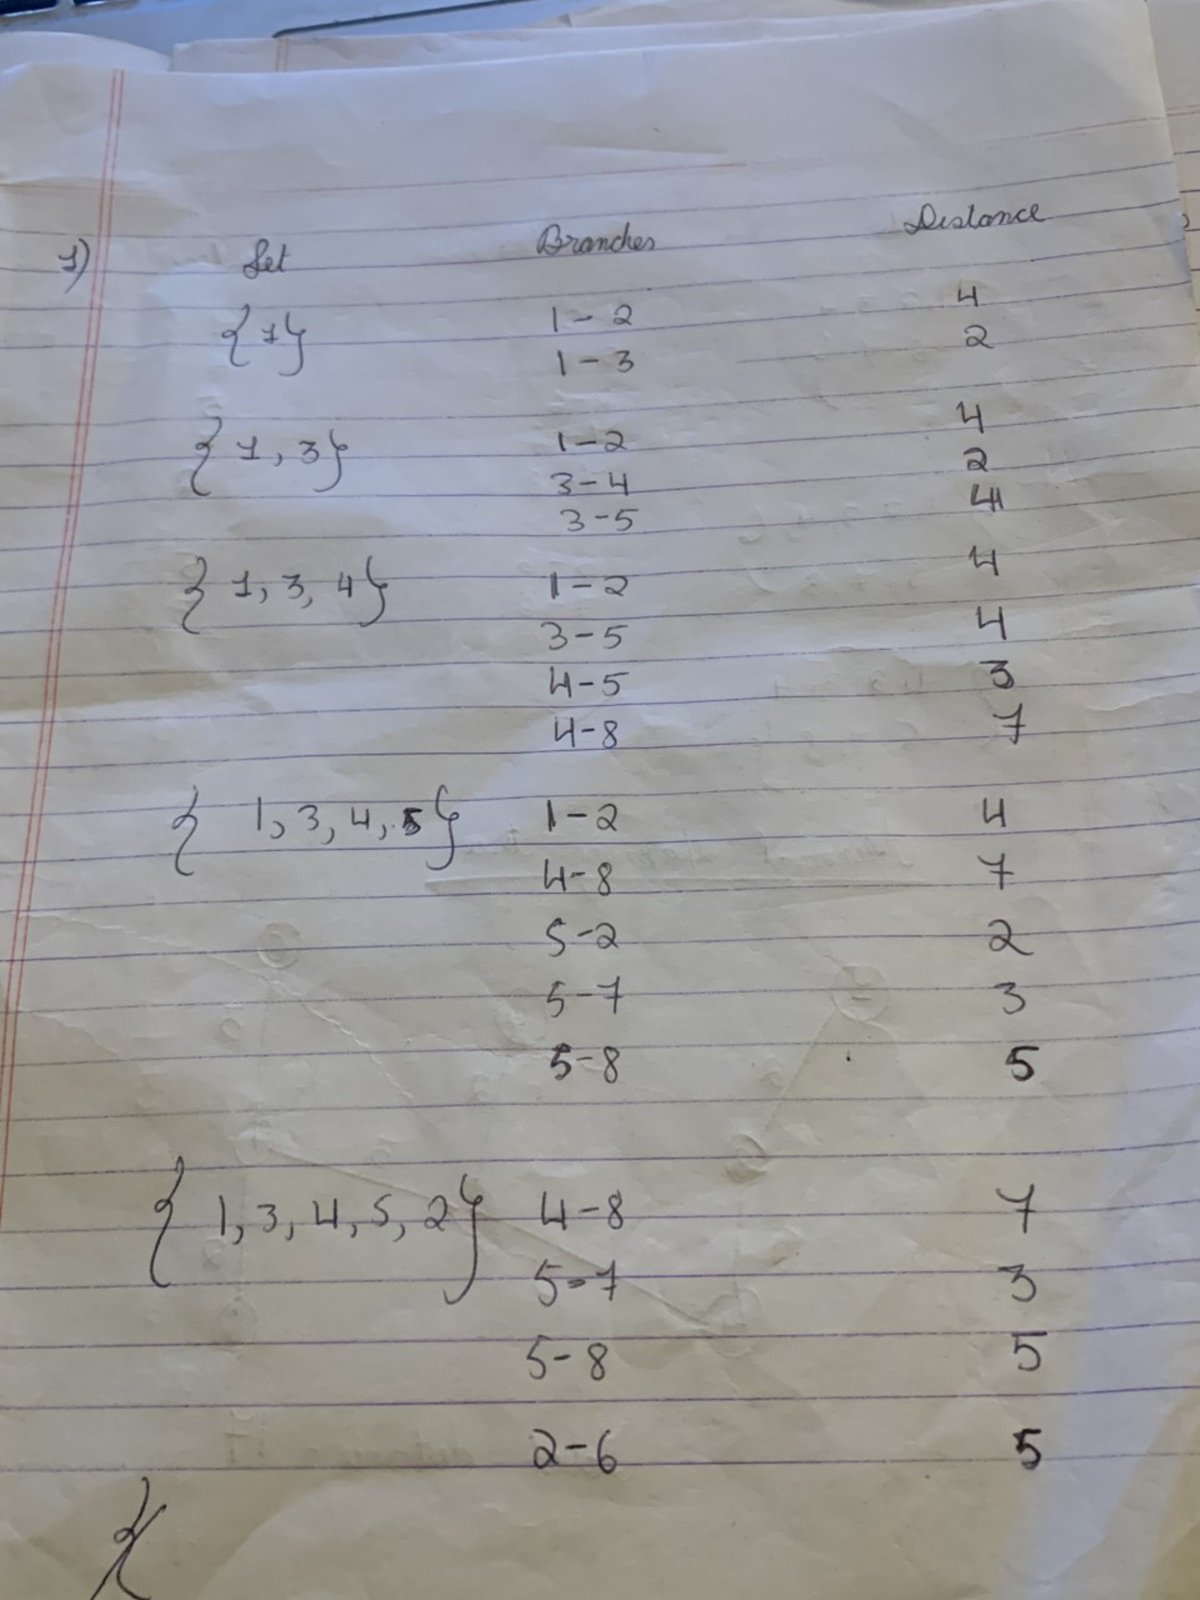 1) Set Branches Distance
{1} 1-2 4
1-3 2
{1, 3} 1-2 4
3-4 2
3-5 4
{1, 3, 4} 1-2 4
3-5 4
4-5 3
4-8 7
{1, 3, 4, 5} 1-2 4
4-8 7
5-2 2
5-7 3
5-8 5
{1, 3, 4, 5, 2} 4-8 7
5-7 3
5-8 5
2-6 5
{